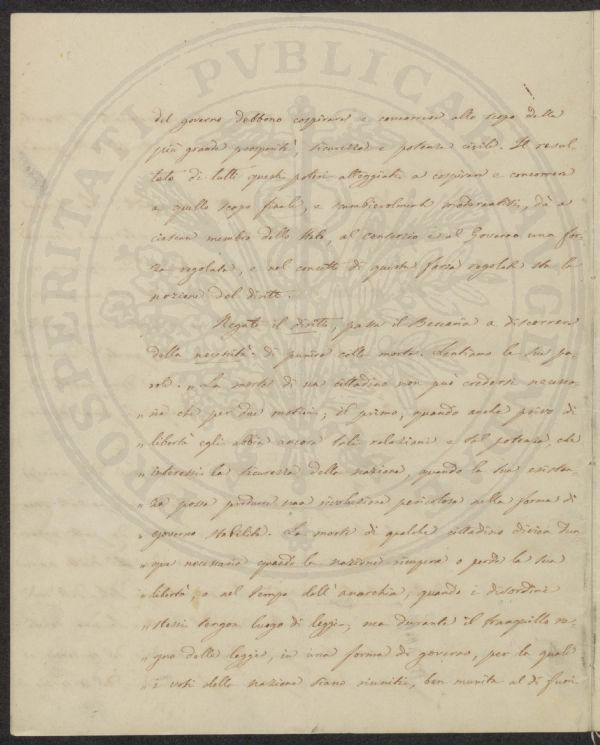 del governo debbono cospirare e concorrere allo scopo della
più grande prosperità, sicurezza e potenza civile. Il resul-
tato di tutti questi poteri atteggiati a cospirare e concorrere
a quello scopo finale, e scambievolmente, dà a
ciascun membro dello Stato, al consorzio e al Governo una for-
za regolata, e nel concetto di questa forza regolata sta la
nozione del diritto.
Negato il diritto, passa il Beccaria a discorrere
della necessità di punire colla morte. Sentiamo le sue pa-
role. "La morte di un cittadino non può credersi necessa-
" ria che per due motivi; il primo, quando anche privo di
" libertà egli abbia ancora tali relazioni e tal potenza, che
" interessi la sicurezza della nazione, quando la sua esisten-
" za possa produrre una rivoluzione pericolosa nella forma di
" governo stabilita. La morte di qualche cittadino divien dun-
" que necessaria quando la nazione ricupera o perde la sua
" libertà, o nel tempo dell'anarchia, quando i disordini
" stessi tengon luogo di leggi; ma durante il tranquillo re-
" gno delle leggi, in una forma di governo, per la quale
" i voti della nazione siano riuniti, ben munita al di fuori
PROSPERITATI PVBLICAE